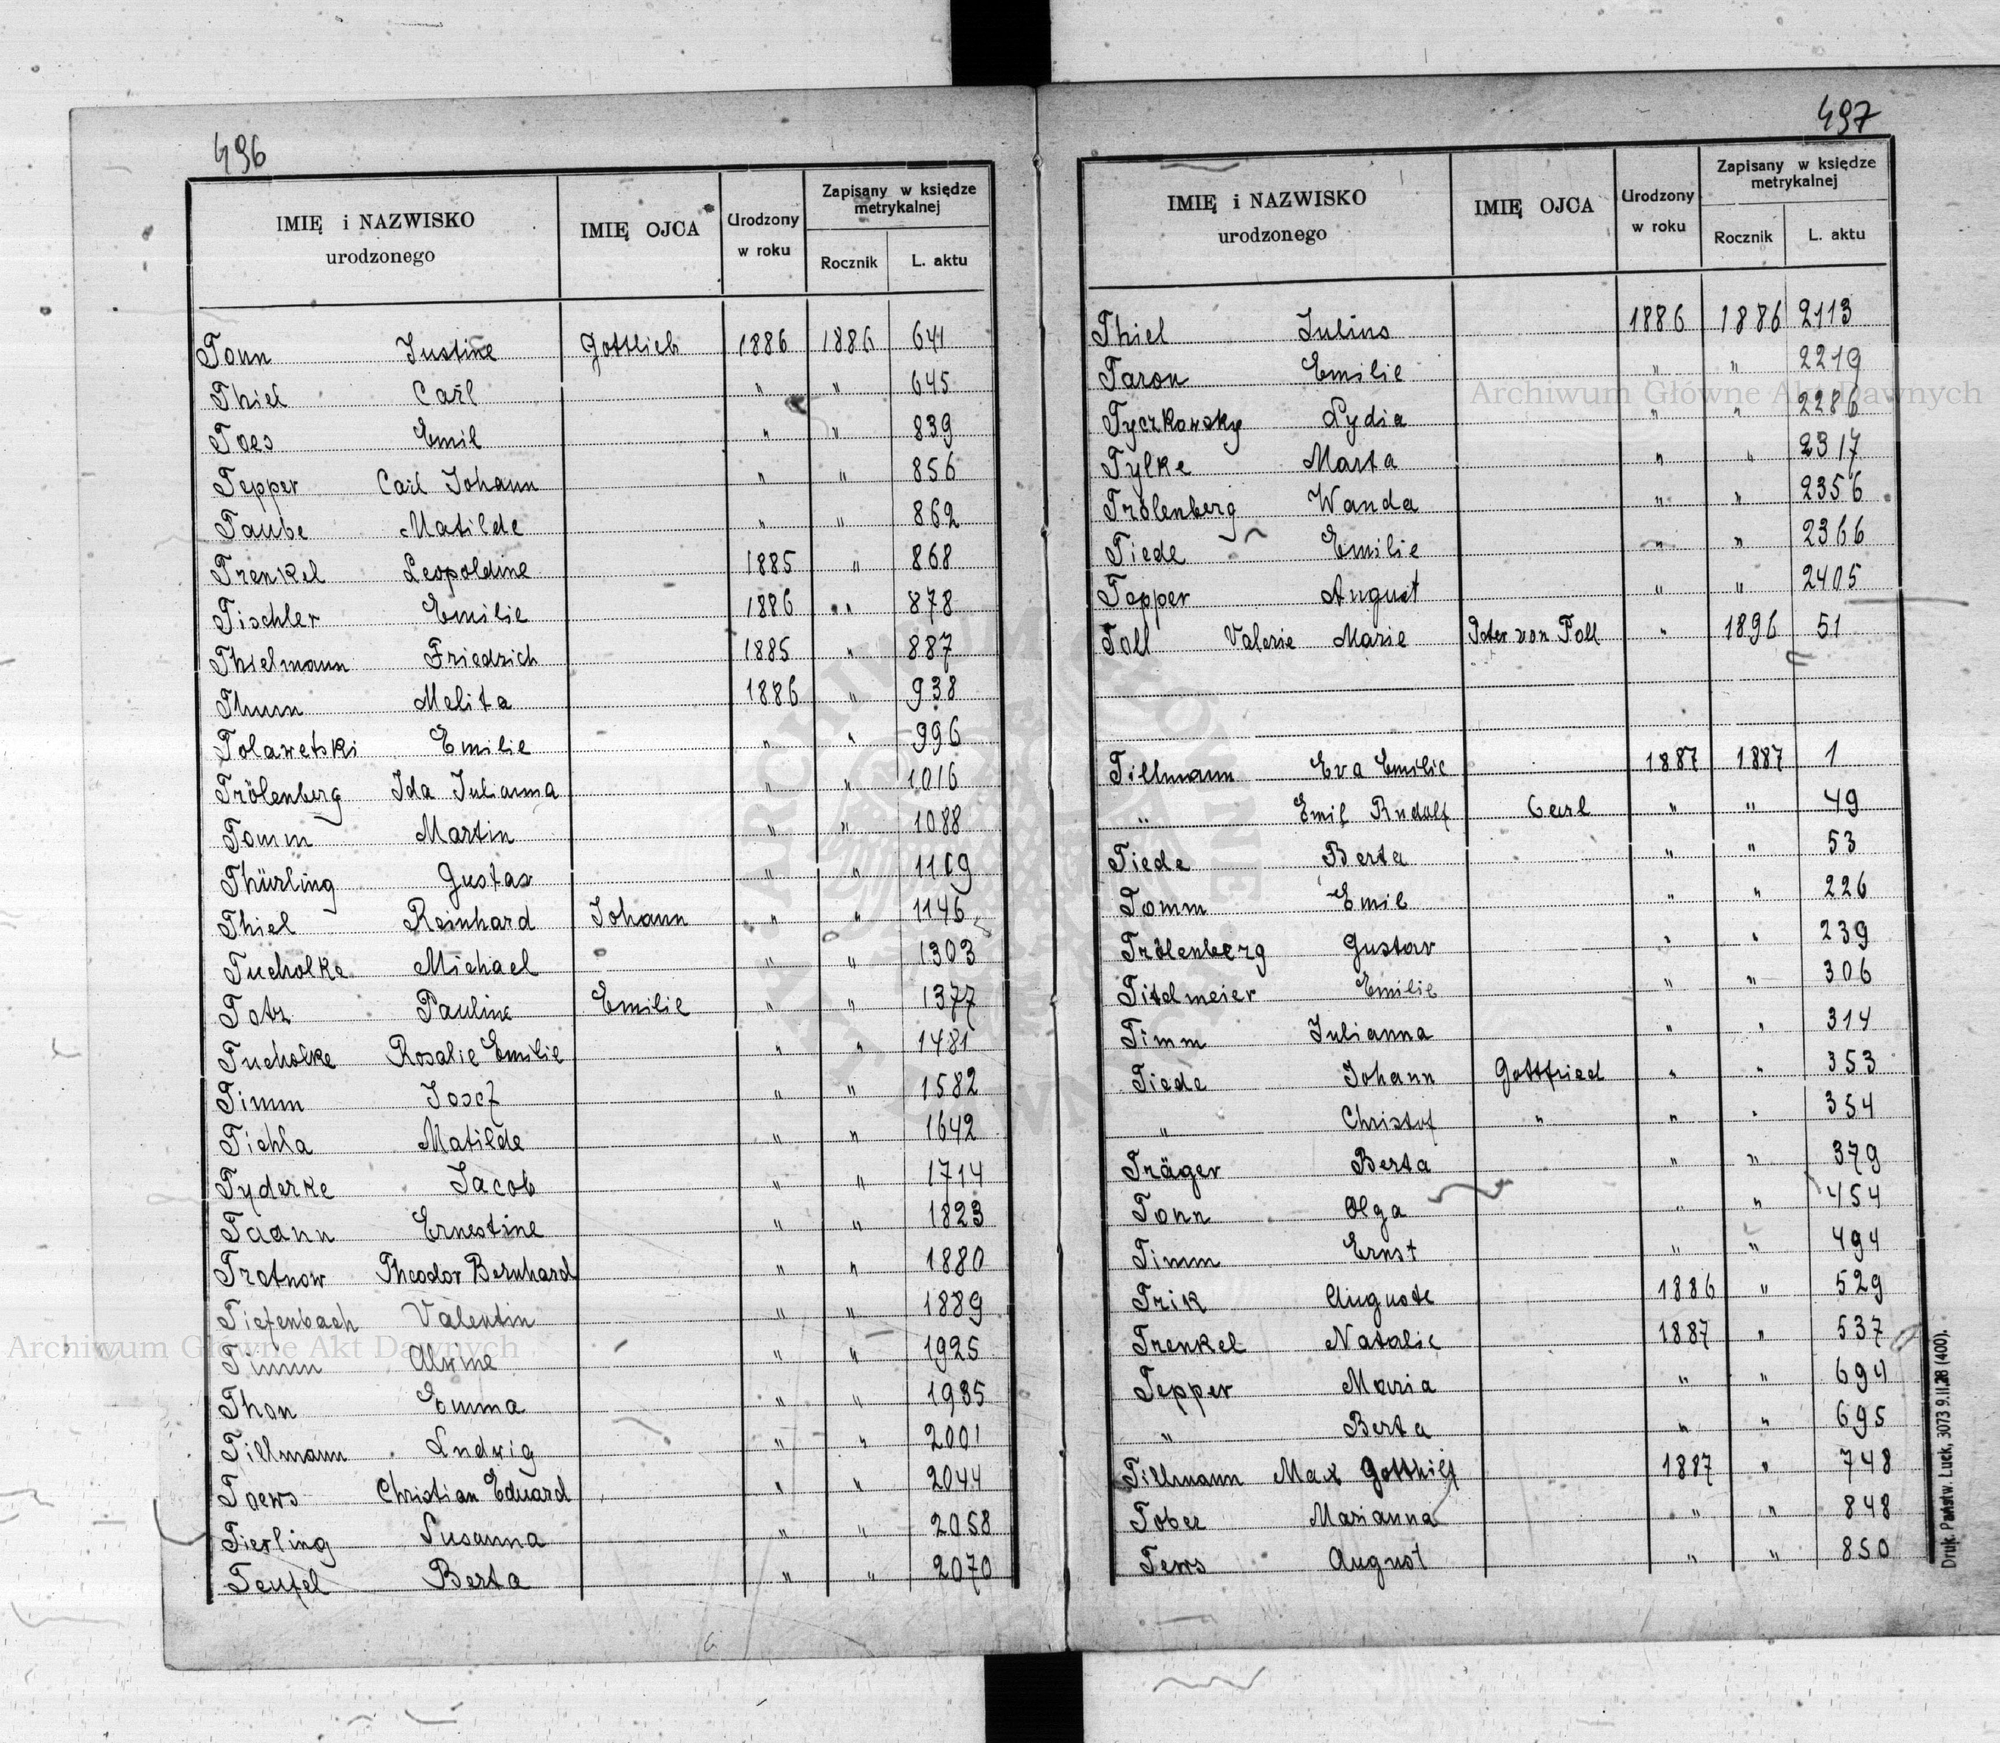 496
IMIĘ i NAZWISKO urodzonego IMIĘ OJCA Urodzony w roku Zapisany w księdze metrykalnej Rocznik L. aktu
Tonn Justine Gottlieb 1886 1886 641
Thiel Carl " " 645
Toes Emil " " 839
Tepper Carl Johann " " 856
Taube Matilde " " 862
Trenkel Leopoldine 1885 " 868
Tischler Emilie 1886 " 878
Thielmann Friedrich 1885 " 887
Thum Melita 1886 " 938
Tolawetski Emilie " " 996
Trölenberg Ida Julianna " " 1016
Tomm Martin " " 1088
Thürling Gustav " " 1109
Thiel Reinhard Johann " " 1146
Tucholke Michael " " 1303
Totz Pauline Emilie " " 1377
Tucholke Rosalie Emilie " " 1481
Timm Josef " " 1582
Tichla Matilde " " 1642
Tyderke Jacob " " 1714
Tadann Ernestine " " 1823
Tratnow Theodor Bernhard " " 1880
Tiefenbach Valentin " " 1889
Timm Alwine " " 1925
Thon Emma " " 1985
Tillmann Ludwig " " 2001
Toews Christian Eduard " " 2044
Tierling Susanna " " 2058
Teufel Berta " " 2070
497
IMIĘ i NAZWISKO urodzonego IMIĘ OJCA Urodzony w roku Zapisany w księdze metrykalnej Rocznik L. aktu
Thiel Julius 1886 1886 2113
Taron Emilie " " 2219
Tyczkowsky Lydia " " 2286
Tylke Marta " " 2317
Trölenberg Wanda " " 2356
Tiede Emilie " " 2366
Tepper August " " 2405
Toll Valerie Marie Peter von Toll " 1896 51
Tillmann Eva Emilie 1887 1887 1
" Emil Rudolf Carl " " 49
Tiede Berta " " 53
Tomm Emil " " 226
Trölenberg Gustav " " 239
Titelmeier Emilie " " 306
Timm Julianna " " 314
Tiede Johann Gottfried " " 353
" Christof " " " 354
Träger Berta " " 379
Tonn Olga " " 454
Timm Ernst " " 494
Trik Auguste 1886 " 529
Trenkel Natalie 1887 " 537
Tepper Maria " " 694
" Berta " " 695
Tillmann Max Gotthilf 1887 " 748
Tober Marianna " " 848
Tews August " " 850
Druk. Państw. Łuck, 3073 9.II.28 (400).
Archiwum Główne Akt Dawnych
Archiwum Główne Akt Dawnych
ARCHIWUM GŁÓWNE AKT DAWNYCH